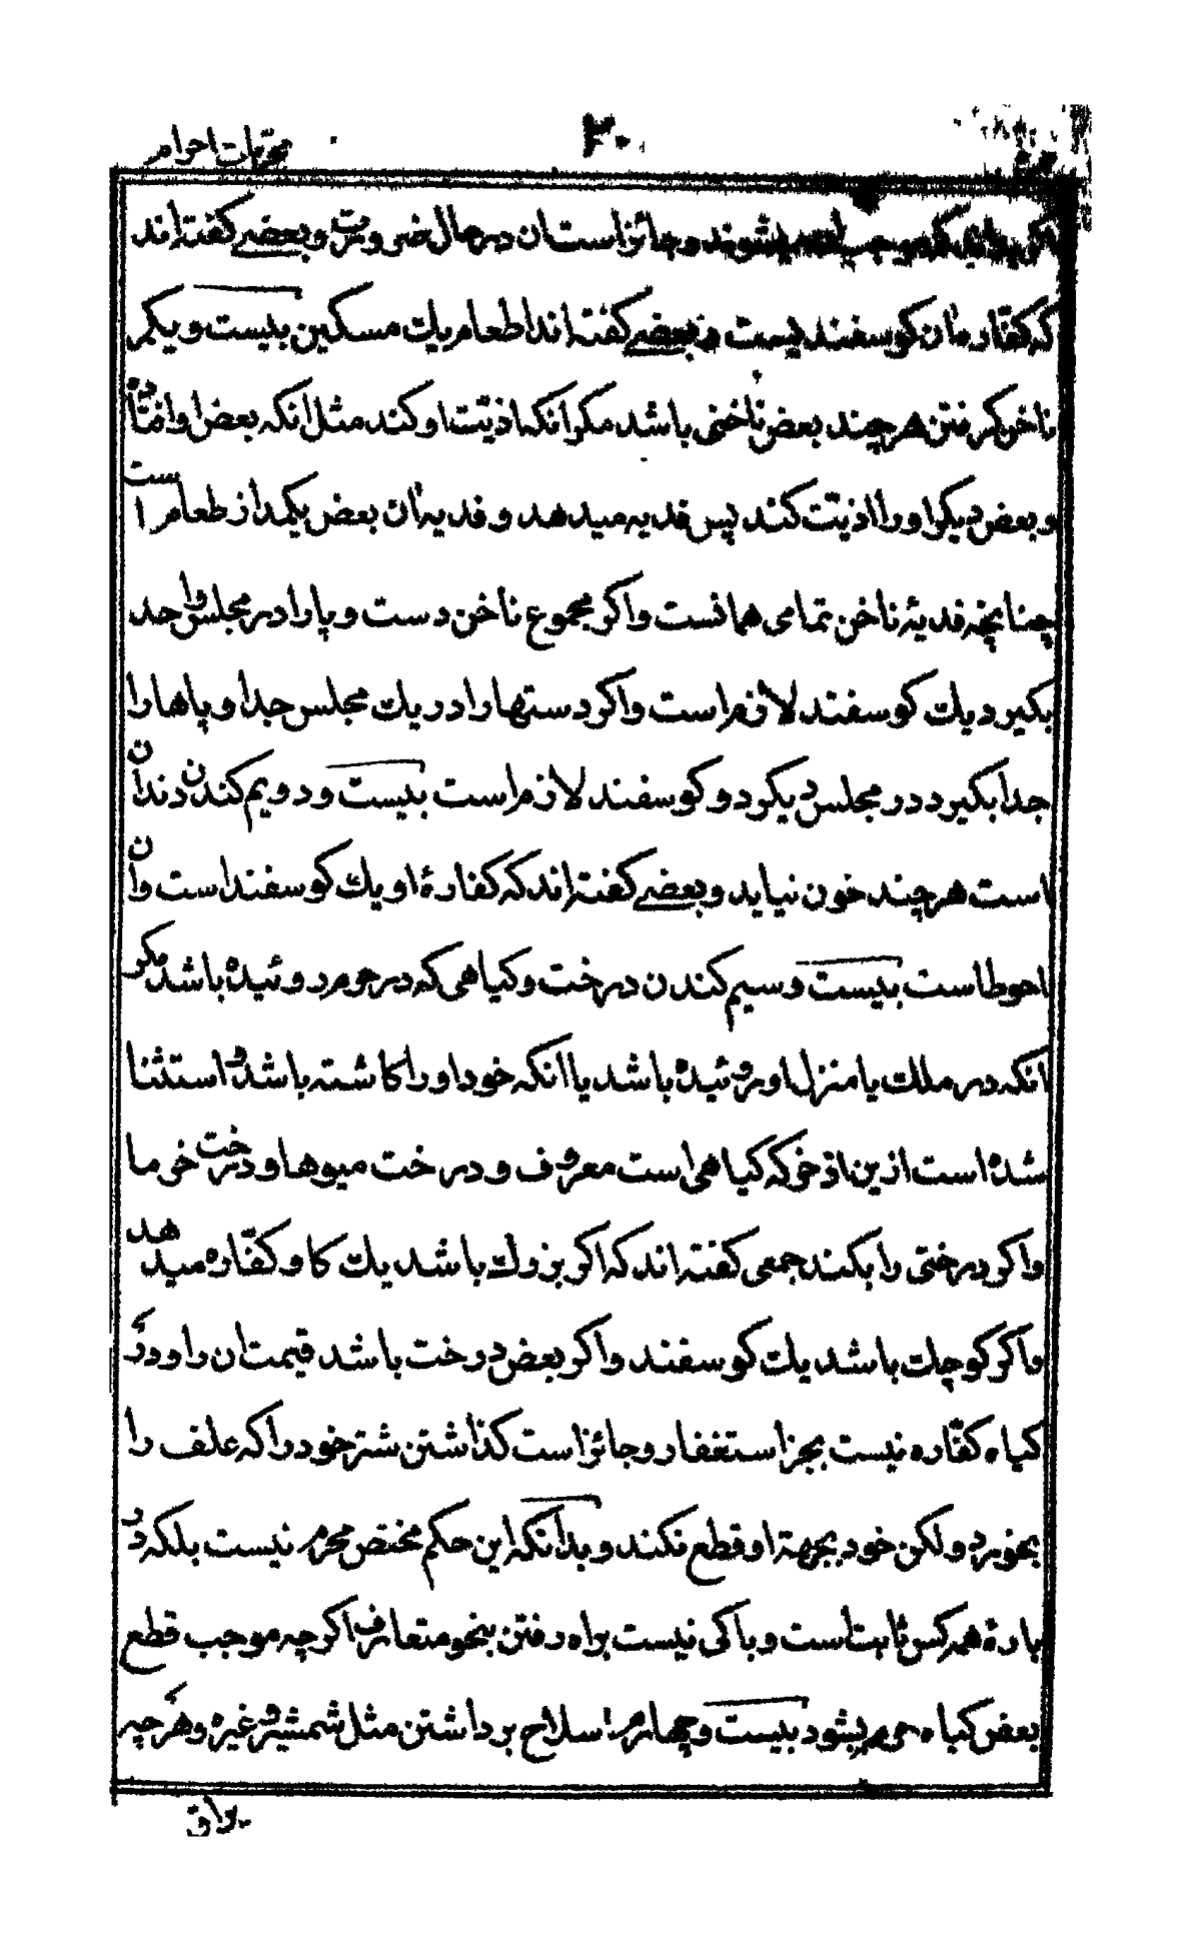 محرمات احرام
۳۰
موجب بشوند و جائز است ان در حال ضرورت و بعضی کفته اند
که کفاره ان کوسفند یست و بعضی کفته اند اطعام یك مسکین بیست و یکم
ناخن کرفتن هر چند بعض ناخنی باشد مکر انکه اذیّت او کند مثل انکه بعض او افتاده
و بعض دیکر او را اذیّت کند پس فدیه میدهد و فدیه ان بعض یکمد از طعام است
چنانچه فدیۀ ناخن تمامی همانست و اکر مجموع ناخن دست و پا را در مجلس واحد
بکیرد یك کوسفند لازم است و اکر دستها را در یك مجلس جدا و پاها را
جدا بکیرد در مجلس دیکر دو کوسفند لازم است بیست و دویم کندن دندان
است هر چند خون نیاید و بعضی کفته اند که کفارۀ او یك کوسفند است وان
احوط است بیست و سیم کندن درخت و کیاهی که در حرم روئیده باشد مکر
انکه در ملك یا منزل او روئیده باشد یا انکه خود او را کاشته باشد و استثنا
شده است ازین اذخر که کیاهی است معروف و درخت میوها و درخت خرما
و اکر درختی را بکند جمعی کفته اند که اکر بزرك باشد یك کاو کفّاره میدهد
و اکر کوچك باشد یك کوسفند و اکر بعض درخت باشد قیمت ان را و در
کیاه کفّاره نیست بجز استغفار و جائز است کذاشتن شتر خود را که علف را
بخورد و لکن خود بجهة او قطع نکند و بدانکه این حکم مختص محرم نیست بلکه در
بارۀ همه کس ثابت است و باکی نیست براه رفتن بنحو متعارف اکرچه موجب قطع
بعض کیاه حرم بشود بیست و چهارم سلاح برداشتن مثل شمشیر و غیره و هر چه
براق